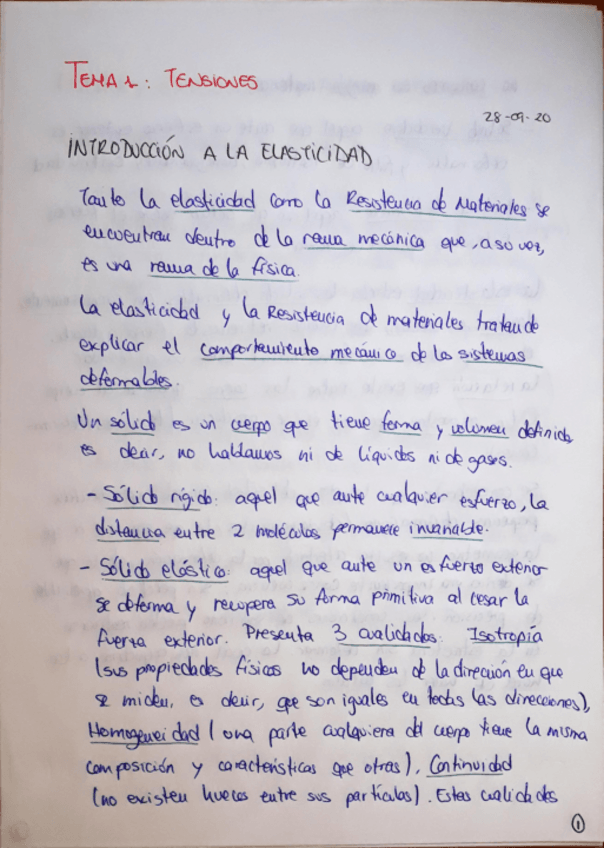 TEMA 1: TENSIONES
28-09-20
INTRODUCCIÓN A LA ELASTICIDAD
Tanto la elasticidad como la Resistencia de Materiales se
encuentran dentro de la rama mecánica que, a su vez,
es una rama de la física.
La elasticidad y la Resistencia de materiales tratan de
explicar el comportamiento mecánico de los sistemas
deformables.
Un sólido es un cuerpo que tiene forma y volumen definida
es decir, no hablamos ni de líquidos ni de gases.
- Sólido rígido: aquel que ante cualquier esfuerzo, la
distancia entre 2 moléculas permanece invariable.
- Sólido elástico: aquel que ante un esfuerzo exterior
se deforma y recupera su forma primitiva al cesar la
fuerza exterior. Presenta 3 cualidades: Isotropía
(sus propiedades físicas no dependen de la dirección en que
se miden, es decir, que son iguales en todas las direcciones),
Homogeneidad (una parte cualquiera del cuerpo tiene la misma
composición y características que otras), Continuidad
(no existen huecos entre sus partículas). Estas cualidades
1